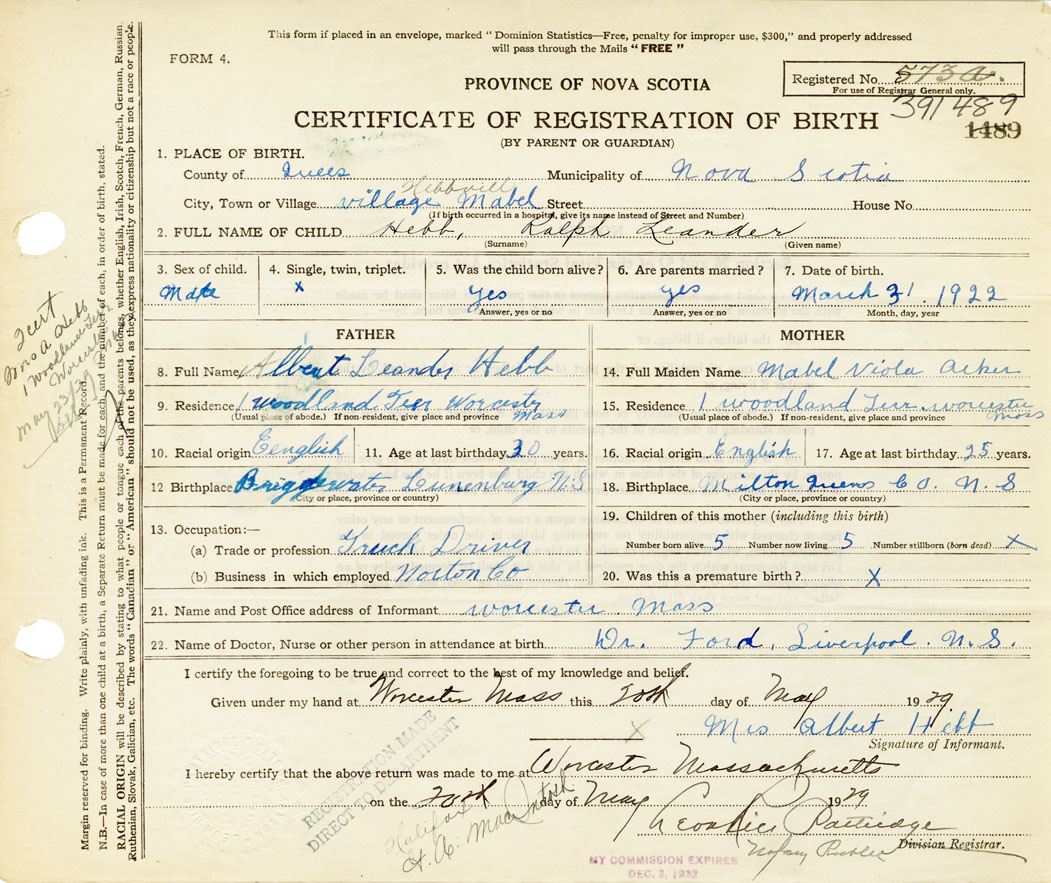 This form if placed in an envelope, marked “ Dominion Statistics—Free, penalty for improper use, $300,” and properly addressed
will pass through the Mails “ FREE ”
FORM 4.
PROVINCE OF NOVA SCOTIA
Registered No. 573a.
For use of Registrar General only.
391489
1489
CERTIFICATE OF REGISTRATION OF BIRTH
(BY PARENT OR GUARDIAN)
1. PLACE OF BIRTH.
County of Municipality of Nova Scotia
Hebbvill
City, Town or Village village Mabel Street House No
(If birth occurred in a hospital, give its name instead of Street and Number)
2. FULL NAME OF CHILD Hebb, Ralph Leander
(Surname) (Given name)
3. Sex of child. 4. Single, twin, triplet. 5. Was the child born alive? 6. Are parents married? 7. Date of birth.
Male x yes yes March 31. 1922
Answer, yes or no Answer, yes or no Month, day, year
FATHER MOTHER
8. Full Name Albert Leander Hebb
14. Full Maiden Name Mabel Viola Acker
9. Residence 1 Woodland Terr Worcester Mass
(Usual place of abode.) If non-resident, give place and province
15. Residence 1 Woodland Terr. Worcester Mass
(Usual place of abode.) If non-resident, give place and province
10. Racial origin Eenglish 11. Age at last birthday 30 years.
16. Racial origin English 17. Age at last birthday 25 years.
12 Birthplace Bridgewater Lunenburg N.S
(City or place, province or country)
18. Birthplace Milton Queens Co. N. S
(City or place, province or country)
13. Occupation:—
(a) Trade or profession Truck Driver
(b) Business in which employed Norton Co
19. Children of this mother (including this birth)
Number born alive 5 Number now living 5 Number stillborn (born dead) X
20. Was this a premature birth? X
21. Name and Post Office address of Informant Worcester Mass
22. Name of Doctor, Nurse or other person in attendance at birth Dr. Ford, Liverpool. N. S.
I certify the foregoing to be true and correct to the best of my knowledge and belief.
Given under my hand at Worcester Mass this 20th day of May 1929.
X Mrs Albert Hebb
Signature of Informant.
I hereby certify that the above return was made to me at Worcester Massachusetts
on the 20th day of May 1929
Partridge
Notary Public Division Registrar.
REGISTRATION MADE
DIRECT TO DEPARTMENT
Halifax
H. A. MacIntosh
MY COMMISSION EXPIRES
DEC. 2, 1932
Margin reserved for binding. Write plainly, with unfading ink. This is a Permanent Record.
N.B.—In case of more than one child at a birth, a Separate Return must be made for each, and the number of each, in order of birth, stated.
RACIAL ORIGIN will be described by stating to what people or tongue each of the parents belongs, whether English, Irish, Scotch, French, German, Russian,
Ruthenian, Slovak, Galician, etc. The words “Canadian” or “American” should not be used, as they express nationality or citizenship but not a race or people.
Mrs A. Hebb
1 Woodland Terr
Worcester
May 23/29